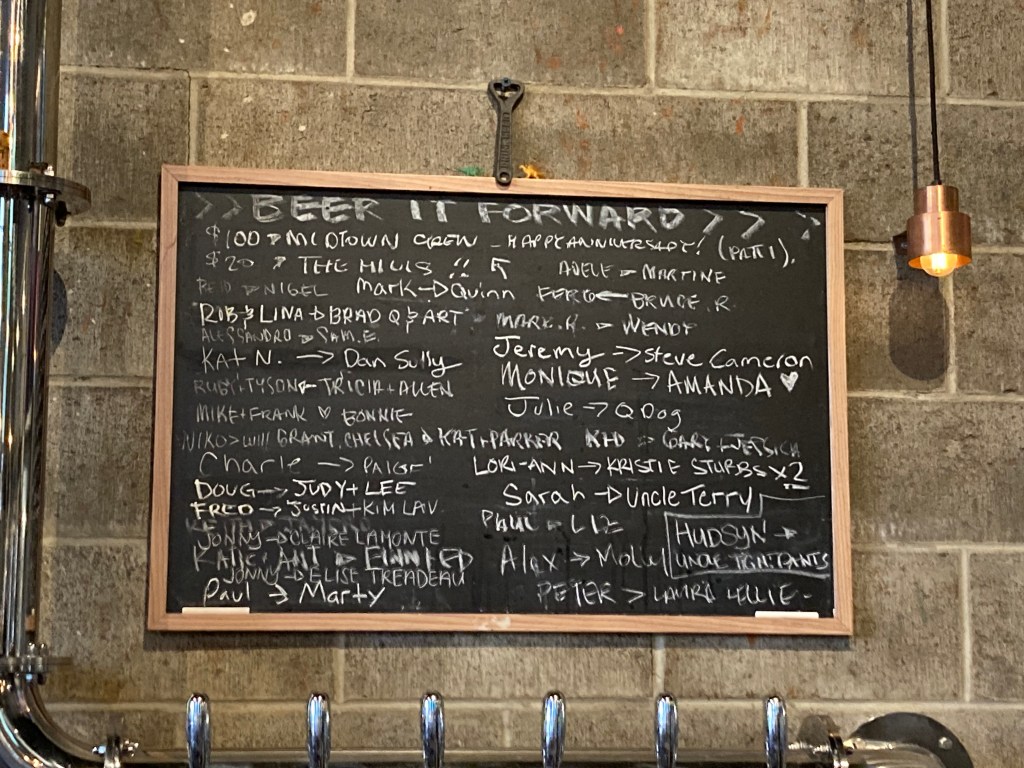 >> BEER IT FORWARD >> >
$100 → MIDTOWN CREW - HAPPY ANNIVERSARY! (PATTI).
$20 → THE HILLS !! ↖ ADELE → MARTINE
REID → NIGEL Mark → Quinn FERG ← BRUCE R.
ROB & LINA → BRAD Q & ART MARK.H. → WENDY
ALESSANDRO → SAM.E.
KAT N. → Dan Sully Jeremy → Steve Cameron
RUBY, TYSON ← TRICIA + ALLEN MONIQUE → AMANDA ♥
MIKE + FRANK ♡ BONNIE Julie → Q Dog
NIKO > WILL GRANT, CHELSEA & KAT + PARKER → GARY + JESSICA
Charle → PAIGE LORI-ANN → KRISTIE STUBBS x2
DOUG → JUDY + LEE Sarah → Uncle Terry
FRED → JUSTIN + KIM LAV PAUL → LIZ
JONNY → CLAIRE LAMONTE HUDSYN →
KATIE, ANT → Alex → Molly UNCLE TIGHTPANTS
JONNY → ELISE TREADEAU
Paul → Marty PETER > LAURA